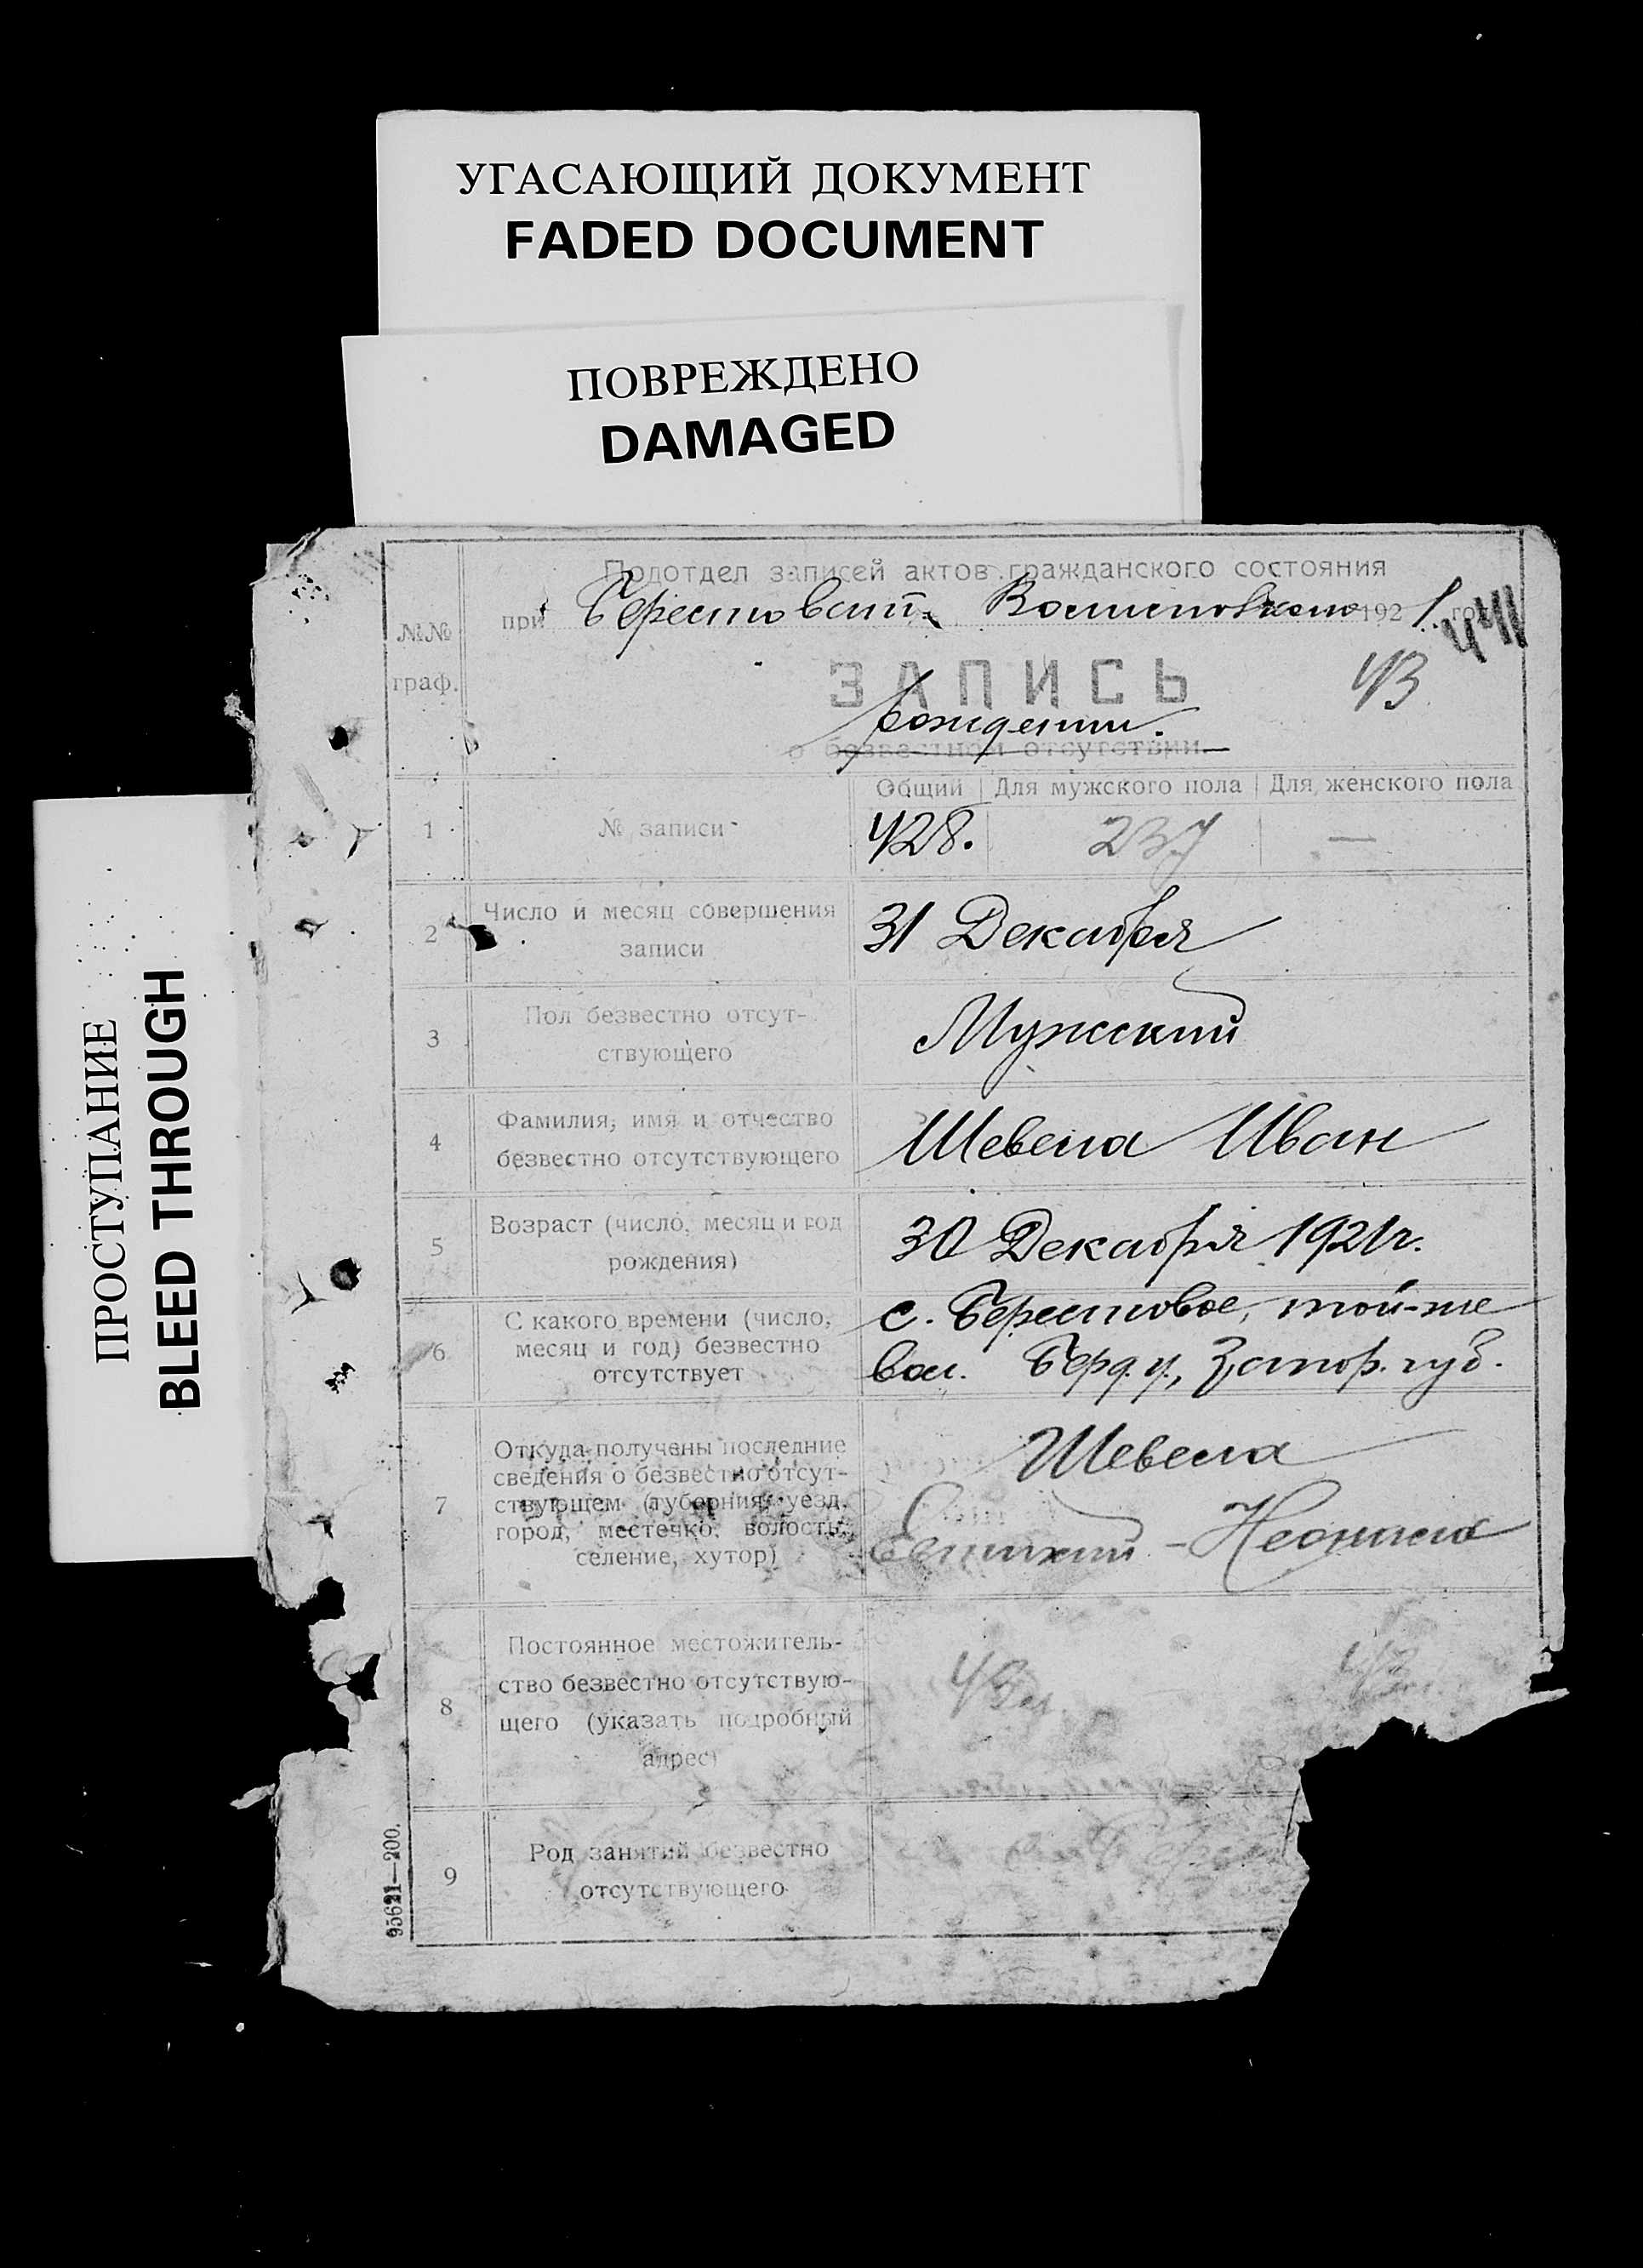 УГАСАЮЩИЙ ДОКУМЕНТ
FADED DOCUMENT
ПОВРЕЖДЕНО
DAMAGED
ПРОСТУПАНИЕ
BLEED THROUGH
Подотдел записей актов гражданского состояния
при Берестоват. 1921 го
№№ граф.
441
ЗАПИСЬ
43
рождении.
о безвестном отсутствии.
Общий Для мужского пола Для женского пола
1 № записи 428. 237 —
2 Число и месяц совершения
записи
31 Декабря
3 Пол безвестно отсут-
ствующего
Мужской
4 Фамилия, имя и отчество
безвестно отсутствующего
Шевела Иван
5 Возраст (число, месяц и год
рождения)
30 Декабря 1921 г.
6 С какого времени (число,
месяц и год) безвестно
отсутствует
с. Берестовое, той-же
вол. Берд. у., Запор. губ.
7 Откуда получены последние
сведения о безвестно отсут-
ствующем (губерния, уезд,
город, местечко, волость,
селение, хутор)
Шевела
8 Постоянное местожитель-
ство безвестно отсутствую-
щего (указать подробный
адрес)
9 Род занятий безвестно
отсутствующего
95621—200.